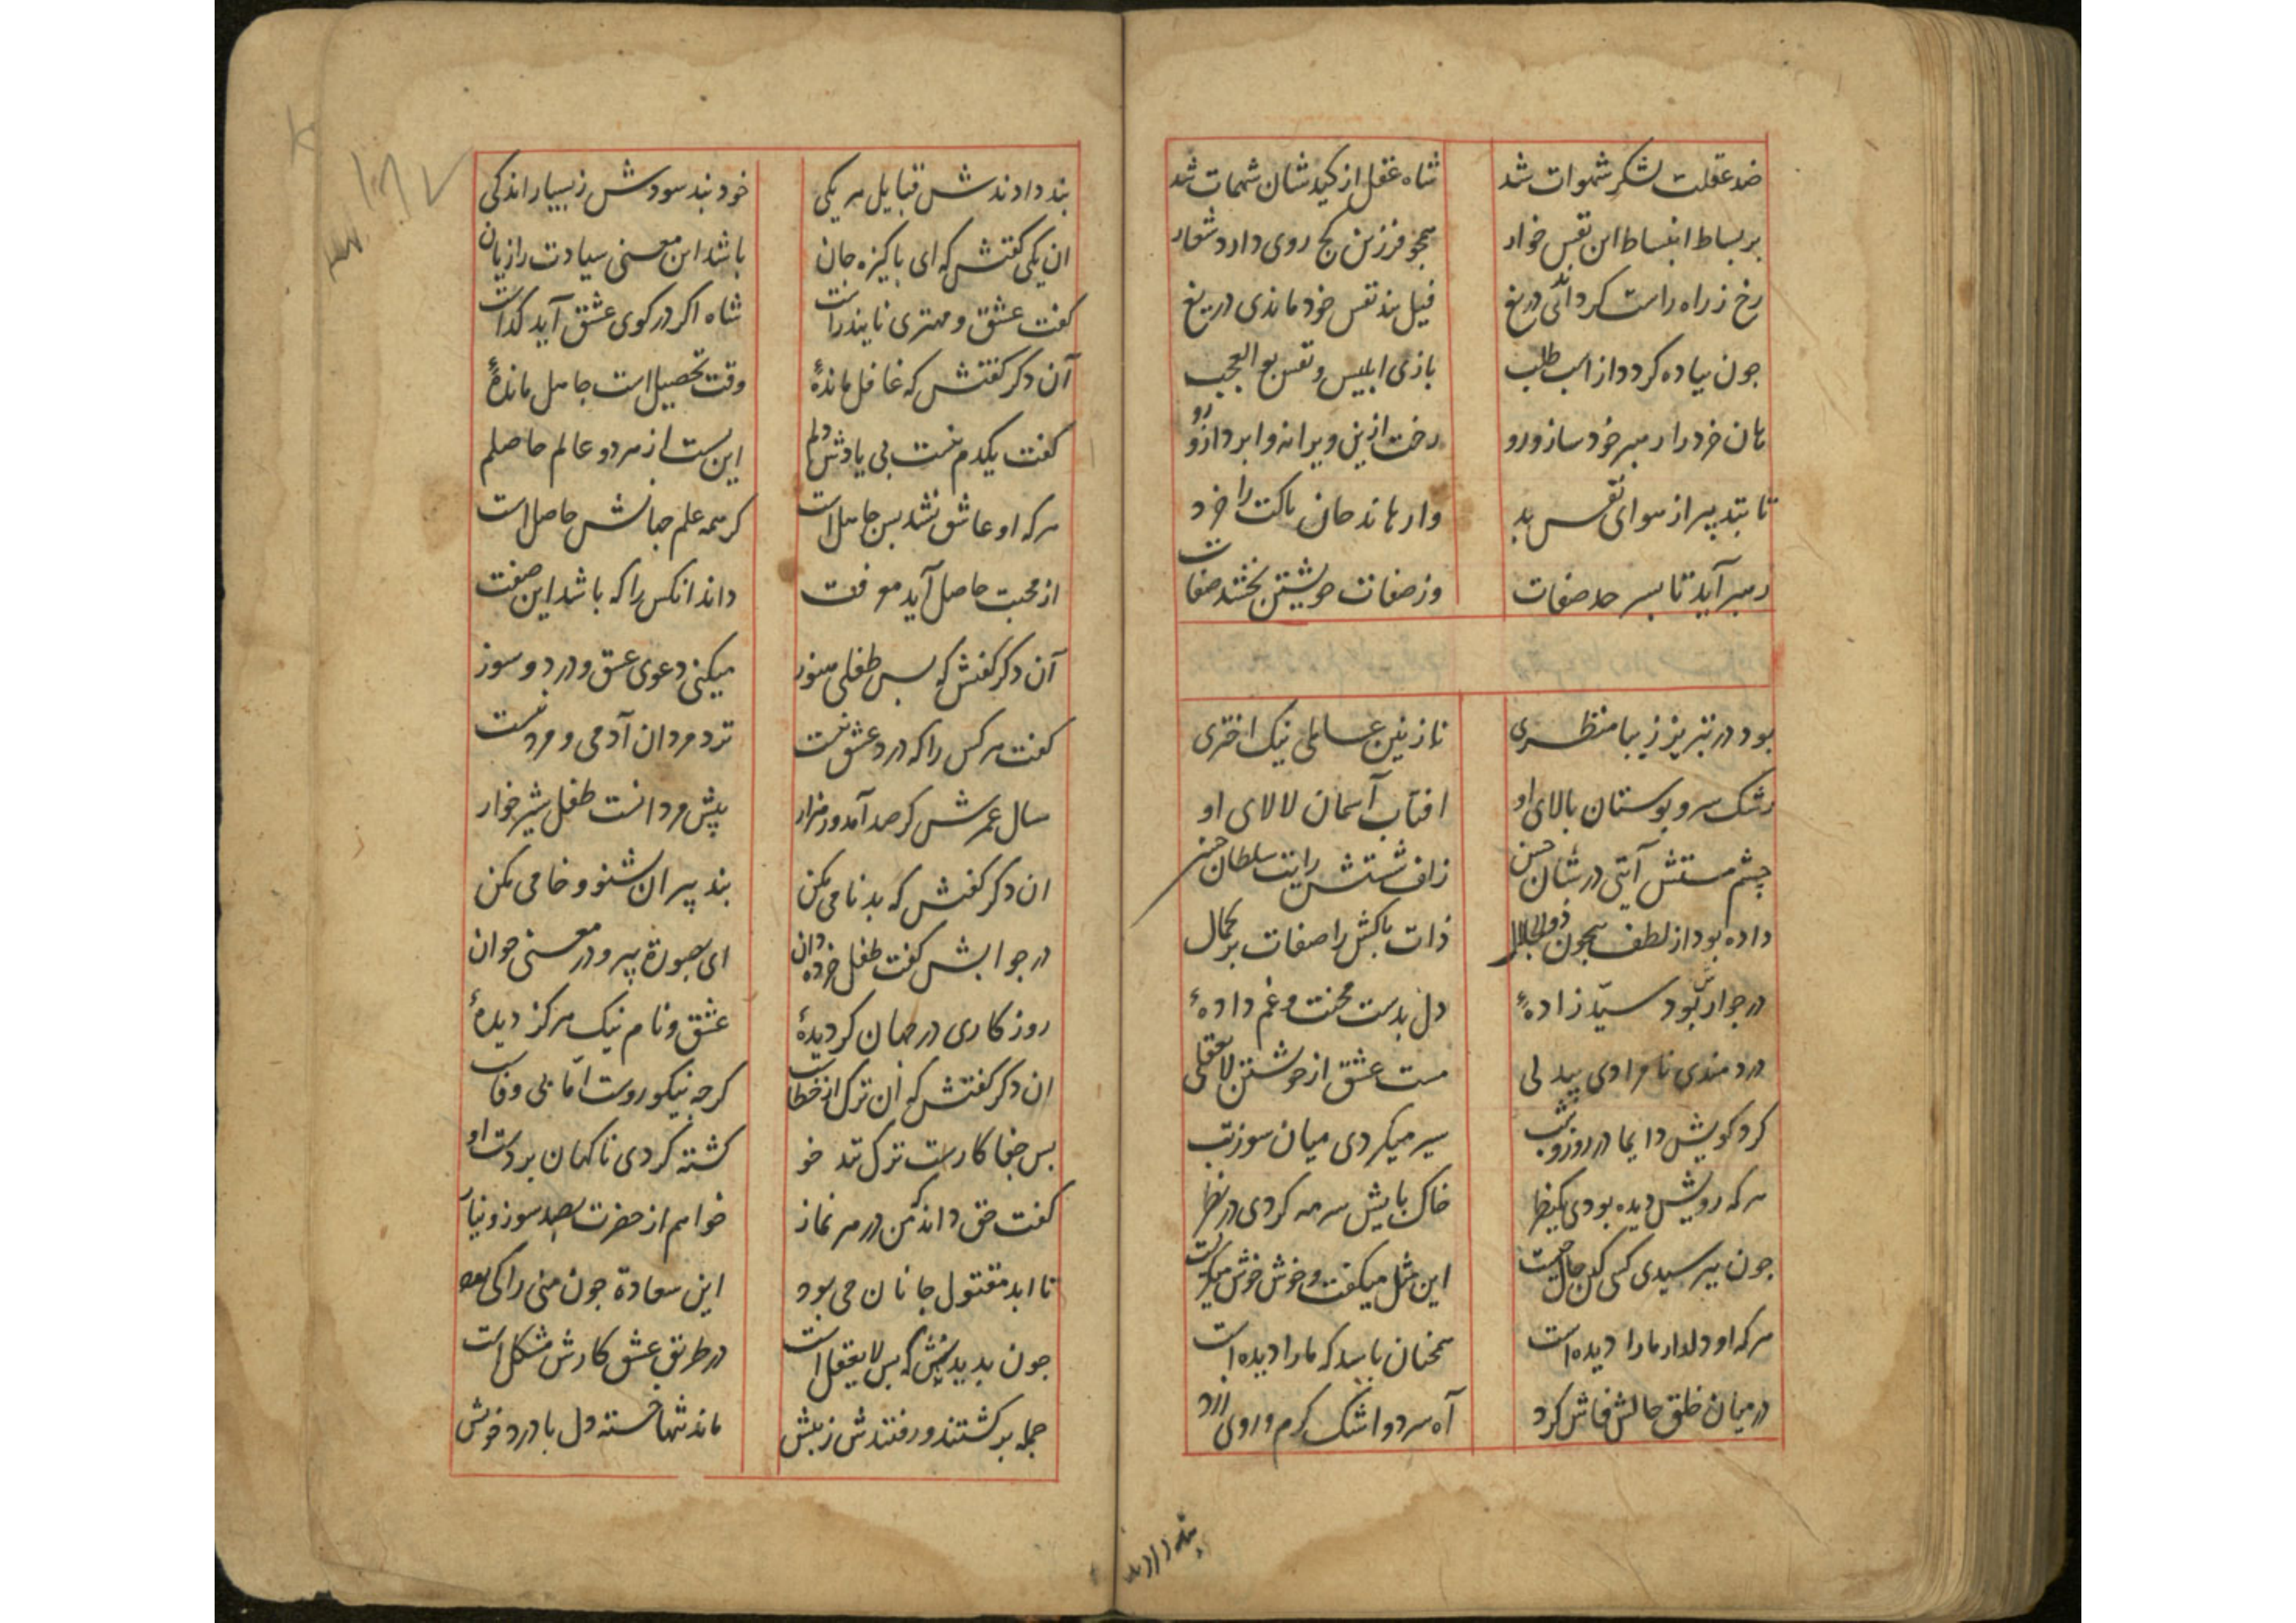 ضد عقلت لشکر شهوات شد شاه عقل از کید شان شهمات شد
بر بساط انبساط این نفس خوار همچو فرزین کج روی دارد شعار
رخ ز راه راست کرداندئی دریغ فیل بند نفس خود ماندی دریغ
جون پیاده کردد از اسب طلب بازی ابلیس و نفس بو العجب
هان خرد را رهبر خود ساز و رو رخت ازین ویرانه وا برداز و رو
تا بتدبیر از هوای نفس بد وارهاند جان باکت را خرد
رهبر آید تا بسر حد صفات وز صفات خویشتن بخشد صفات
بود در تبریز زیبا منظری نازنین عاملی نیک اختری
رشک سرو بوستان بالای او افتاب آسمان لالای او
چشم مستش آیتی در شان حسن زلف شستش رایت سلطان حسن
داده بود از لطف بیچون ذوالجلال ذات باکش را صفات بر کمال
در جوارش بود سید زادهٔ دل بدست محنت و غم دادهٔ
دردمندی نامرادی بیدلی مست عشق از خویشتن لا یعقلی
کرد کویش دایما در روز و شب سیر میکردی میان سوز تب
هر که رویش دیده بودی یکنظر خاک بایش سرمه کردی در نظر
جون بپرسیدی کسی کین حال جیست این مثل میکفت و خوش خوش میکریست
هر که او دلدار ما را دیده است همچنان باشد که ما را دیده است
در میان خلق حالش فاش کرد آه سرد و اشک کرم و روی زرد
بند دادندش قبایل هر یکی خود نبد سودش ز بسیار اندکی
ان یکی کفتش که ای باکیزه جان باشد این معنی سیادت را زیان
کفت عشق و مهتری نایند راست شاه اکر در کوی عشق آید کداست
آن دکر کفتش که غافل ماندهٔ وقت تحصیل است جاهل ماندهٔ
کفت یکدم نیست بی یادش دلم این بست از هر دو عالم حاصلم
هر که او عاشق نشد بس جاهل است کر همه علم جهانش حاصل است
از محبت حاصل آید معرفت داند انکس را که باشد این صفت
آن دکر کفتش که بس طفلی هنوز میکنی دعوی عشق و درد و سوز
کفت هر کس را که درد عشق نیست نزد مردان آدمی و مرد نیست
سال عمرش کر صد آمد ور هزار پیش مردانست طفل شیرخوار
ان دکر کفتش که بدنامی مکن بند پیران بشنو و خامی مکن
در جوابش کفت طفل خرده دان ای بصورة پیر و در معنی جوان
روزکاری در جهان کردیدهٔ عشق و نام نیک هرکز دیدهٔ
ان دکر کفتش که آن ترک از خطاست کرجه نیکو روست اما بی وفاست
بس جفا کارست ترک تند خو کشته کردی ناکهان بر دست او
کفت حق داند که من در هر نماز خواهم از حضرت بصد سوز و نیاز
تا ابد مقتول جانان می بود این سعادة جون منی را کی بود
جون بدیدندش که بس لا یعقل است در طریق عشق کارش مشکل است
جمله برکشتند و رفتندش ز بیش ماند تنها خسته دل با درد خویش